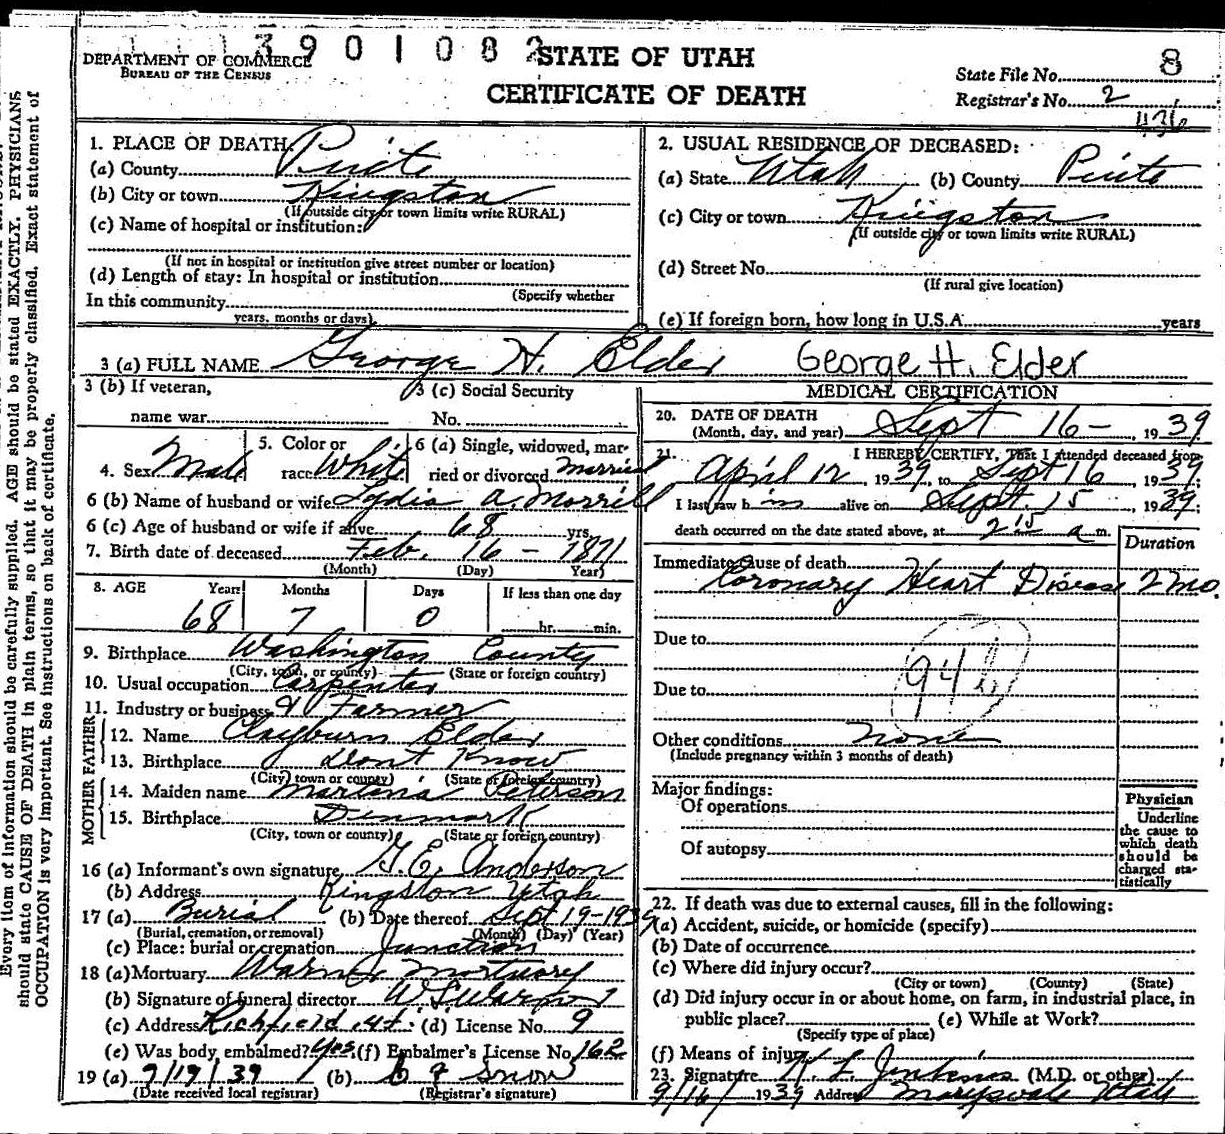 3901082
STATE OF UTAH
DEPARTMENT OF COMMERCE
BUREAU OF THE CENSUS
CERTIFICATE OF DEATH
State File No. 8
Registrar's No. 2
436
1. PLACE OF DEATH:
(a) County Piute
(b) City or town Kingston
(If outside city or town limits write RURAL)
(c) Name of hospital or institution:
(If not in hospital or institution give street number or location)
(d) Length of stay: In hospital or institution
(Specify whether
In this community
years, months or days)
2. USUAL RESIDENCE OF DECEASED:
(a) State Utah (b) County Piute
(c) City or town Kingston
(If outside city or town limits write RURAL)
(d) Street No.
(If rural give location)
(e) If foreign born, how long in U.S.A. years
3 (a) FULL NAME George H. Elder George H. Elder
3 (b) If veteran,
name war
3 (c) Social Security
No.
4. Sex Male
5. Color or
race White
6 (a) Single, widowed, mar-
ried or divorced Married
6 (b) Name of husband or wife Lydia A. Morrill
6 (c) Age of husband or wife if alive 68 yrs.
7. Birth date of deceased Feb. 16 - 1871
(Month) (Day) Year)
8. AGE Years Months Days If less than one day
68 7 0 hr. min.
9. Birthplace Washington County
(City, town, or county) (State or foreign country)
10. Usual occupation Carpenter
11. Industry or business & Farmer
FATHER
12. Name Clayburn Elder
13. Birthplace Dont Know
(City, town or county) (State or foreign country)
MOTHER
14. Maiden name Martena Peterson
15. Birthplace Denmark
(City, town or county) (State or foreign country)
16 (a) Informant's own signature G. E. Anderson
(b) Address Kingston Utah
17 (a) Burial (b) Date thereof Sept 19-1939
(Burial, cremation, or removal) (Month) (Day) (Year)
(c) Place: burial or cremation Junction
18 (a) Mortuary Warner Mortuary
(b) Signature of funeral director
(c) Address Richfield, Ut. (d) License No. 9
(e) Was body embalmed? Yes (f) Embalmer's License No. 162
19 (a) 9/19/39 (b) Snow
(Date received local registrar) (Registrar's signature)
MEDICAL CERTIFICATION
20. DATE OF DEATH
(Month, day, and year) Sept 16 - , 1939
21. I HEREBY CERTIFY, That I attended deceased from
April 12, 1939, to Sept 16, 1939;
I last saw him alive on Sept. 15, 1939;
death occurred on the date stated above, at 2 15 a m.
Duration
Immediate Cause of death
Coronary Heart Disease 2 mo.
Due to
94b
Due to
Other conditions None
(Include pregnancy within 3 months of death)
Major findings:
Of operations
Of autopsy
Physician
Underline
the cause to
which death
should be
charged sta-
tistically
22. If death was due to external causes, fill in the following:
(a) Accident, suicide, or homicide (specify)
(b) Date of occurrence
(c) Where did injury occur?
(City or town) (County) (State)
(d) Did injury occur in or about home, on farm, in industrial place, in
public place? (e) While at Work?
(Specify type of place)
(f) Means of injury
23. Signature H. L. Jenkins (M.D. or other)
9/16/ 1939 Address Marysvale Utah
Every item of information should be carefully supplied. AGE should be stated EXACTLY. PHYSICIANS
should state CAUSE OF DEATH in plain terms, so that it may be properly classified. Exact statement of
OCCUPATION is very important. See instructions on back of certificate.